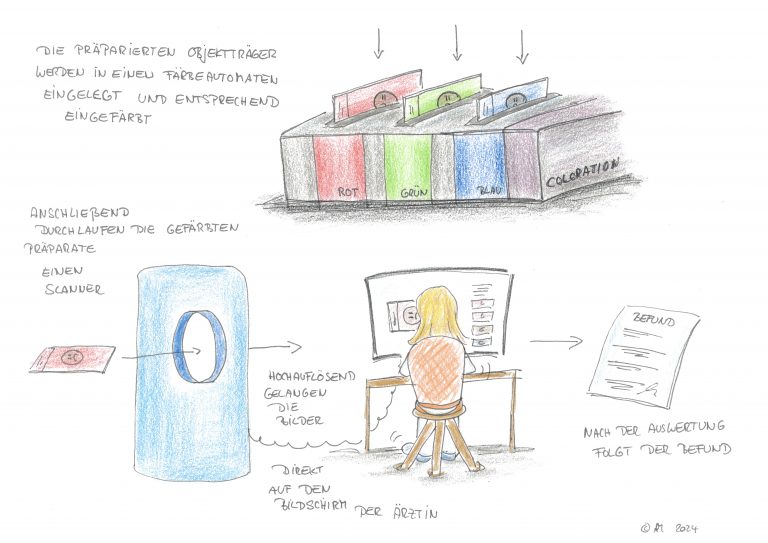 DIE PRÄPARIERTEN OBJEKTTRÄGER
WERDEN IN EINEN FÄRBEAUTOMATEN
EINGELEGT UND ENTSPRECHEND
EINGEFÄRBT
ROT
GRÜN
BLAU
COLORATION
ANSCHLIEßEND
DURCHLAUFEN DIE GEFÄRBTEN
PRÄPARATE
EINEN
SCANNER
HOCHAUFLÖSEND
GELANGEN
DIE
BILDER
DIREKT
AUF DEN
BILDSCHIRM DER ÄRZTIN
BEFUND
NACH DER AUSWERTUNG
FOLGT DER BEFUND
2024